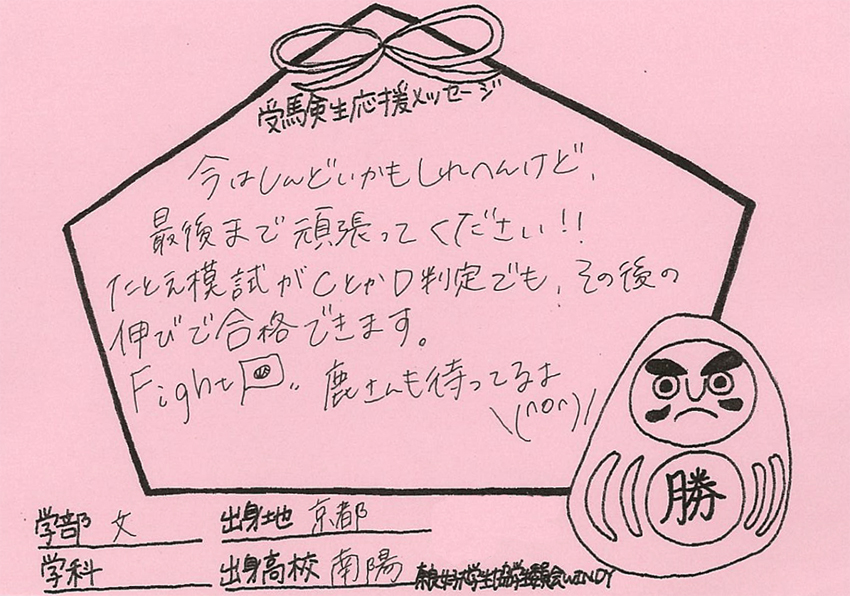 受験生応援メッセージ
今はしんどいかもしれへんけど、
最後まで頑張ってください!!
たとえ模試がCとかD判定でも、その後の
伸びで合格できます。
Fight 鹿さんも待ってるよ
\(^o^)/
勝
学部 文 出身地 京都
学科 出身高校 南陽
WINDY